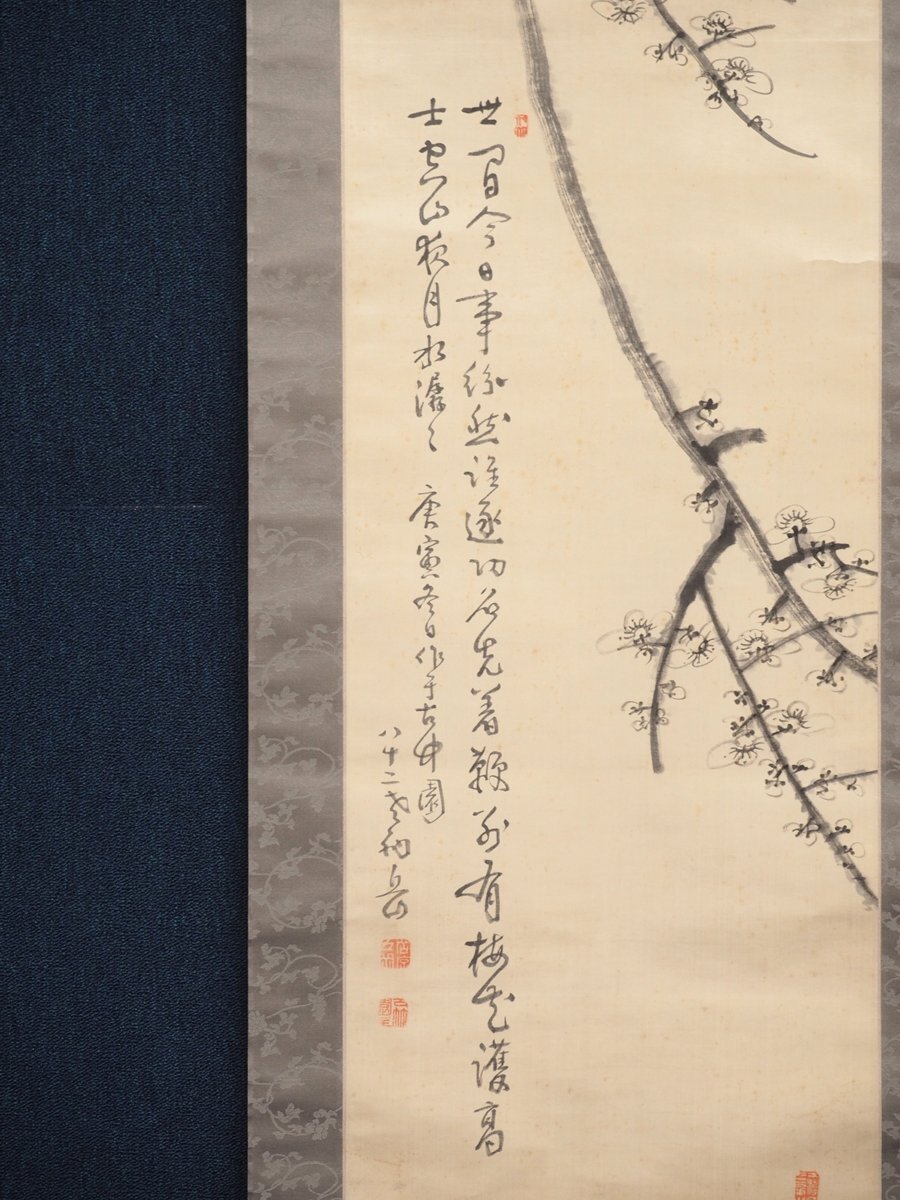 世間今日事紛然誰逐功名先着鞭別有梅花護高
士空山夜月水潺々 庚寅冬日作于古中園
八十二老衲岳